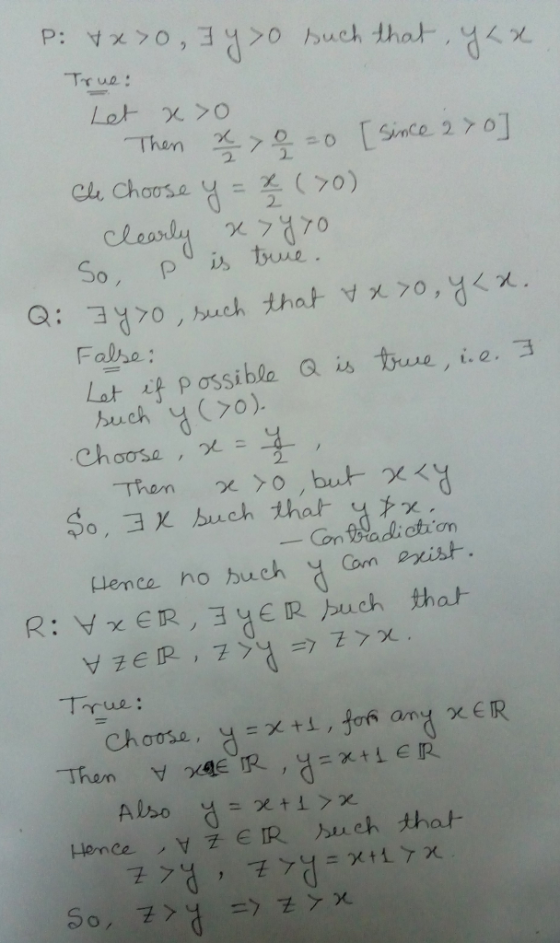 P: ∀x>0, ∃y>0 such that, y<x
True:
Let x>0
Then x/2 > 0/2 = 0 [since 2>0]
Choose y = x/2 (>0)
Clearly x>y>0
So, P is true.
Q: ∃y>0, such that ∀x>0, y<x.
False:
Let if possible Q is true, i.e. ∃
such y(>0).
Choose, x = y/2,
Then x>0, but x<y
So, ∃x such that y≯x.
— Contradiction
Hence no such y can exist.
R: ∀x∈ℝ, ∃y∈ℝ such that
∀z∈ℝ, z>y ⇒ z>x.
True:
Choose, y=x+1, for any x∈ℝ
Then ∀ x∈ℝ, y=x+1∈ℝ
Also y=x+1>x
Hence, ∀z∈ℝ such that
z>y, z>y=x+1>x
So, z>y ⇒ z>x